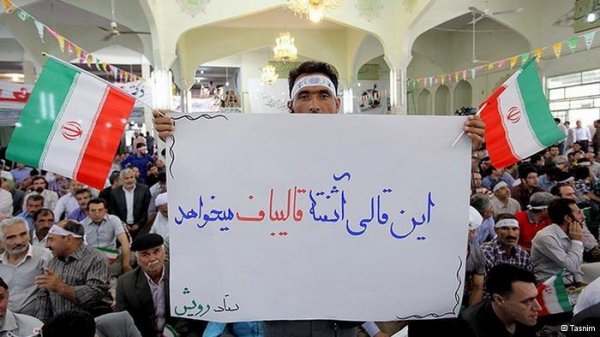 این قالی آشفته قالیباف میخواهد
ستاد رویش
© Tasnim